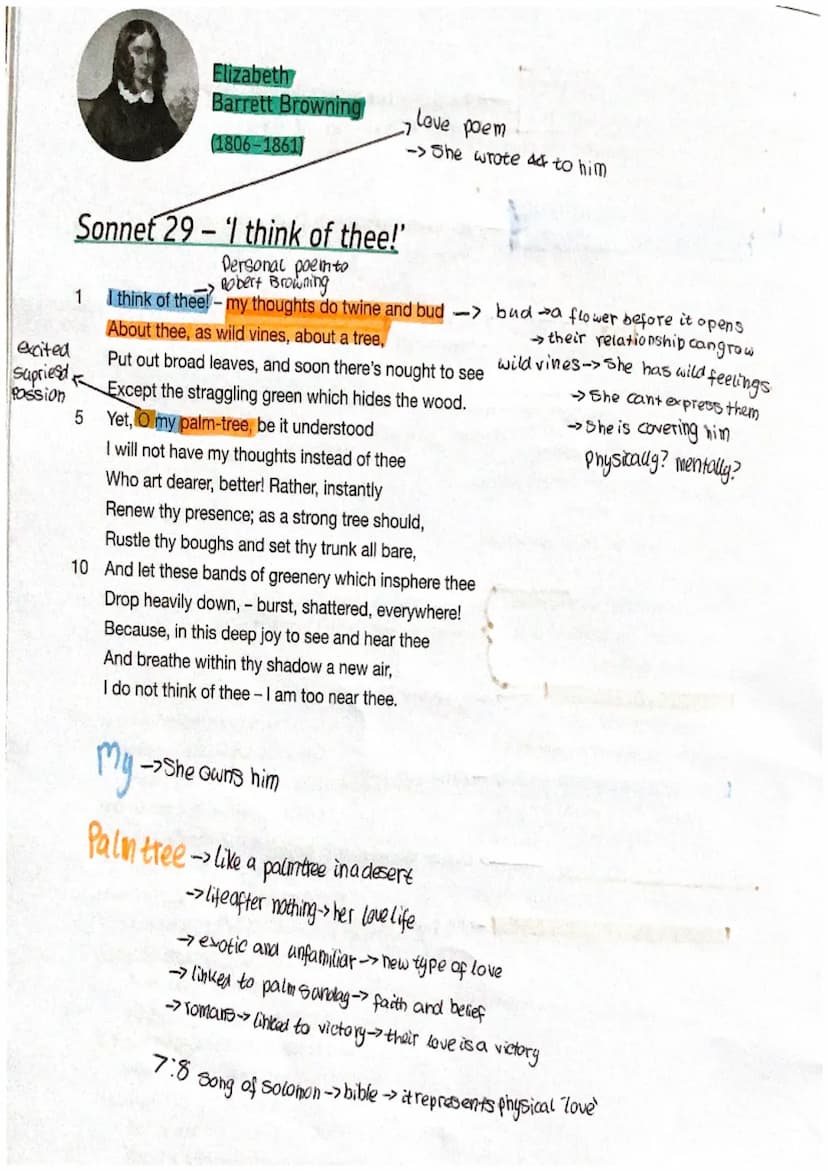 Elizabeth
Barrett Browning
(1806–1861)
love poem
-> She wrote to him
Sonnet 29 – 'I think of thee!'
-> Personal poem to
Robert Browning
1 I think of thee! – my thoughts do twine and bud -> bud -> a flower before it opens
About thee, as wild vines, about a tree,
-> their relationship can grow
Put out broad leaves, and soon there's nought to see
wild vines -> She has wild feelings
Except the straggling green which hides the wood.
-> She cant express them
excited
supriesd
passion
5 Yet, O my palm-tree, be it understood
-> She is covering him
I will not have my thoughts instead of thee
physically? mentally?
Who art dearer, better! Rather, instantly
Renew thy presence; as a strong tree should,
Rustle thy boughs and set thy trunk all bare,
10 And let these bands of greenery which insphere thee
Drop heavily down, – burst, shattered, everywhere!
Because, in this deep joy to see and hear thee
And breathe within thy shadow a new air,
I do not think of thee – I am too near thee.
My -> She owns him
Palm tree -> like a palmtree in a desert
-> life after nothing -> her love life
-> exotic and unfamiliar -> new type of love
-> linked to palm sunday -> faith and belief
-> romans -> linked to victory -> their love is a victory
7:8 song of solomon -> bible -> it represents physical 'love'